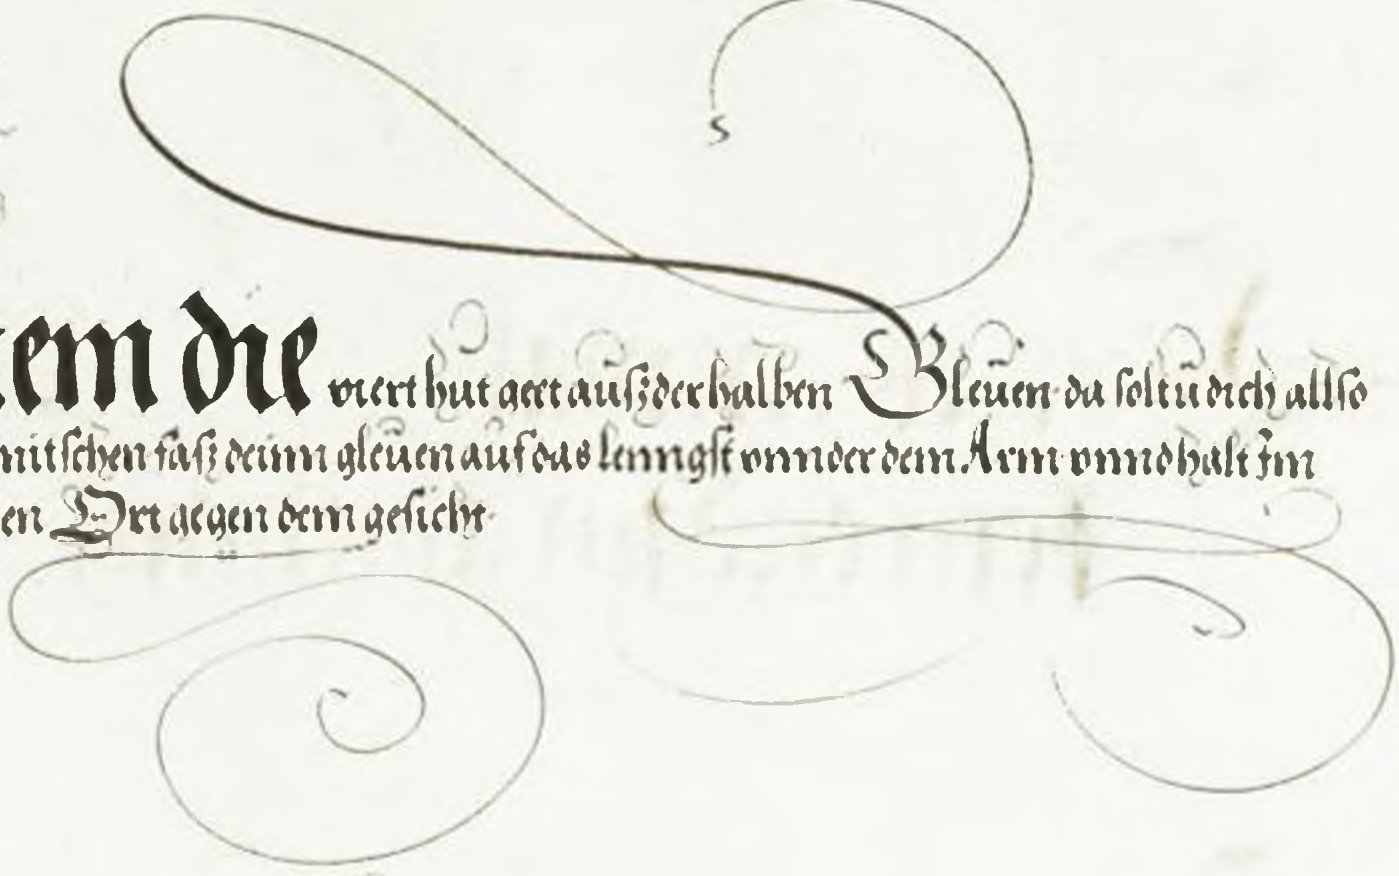 tem die viert hut geet auß der halben Gleuen da soltu dich allso
mitschen faß deinn gleuen auf das lenngst vnnder dem Arm vnnd halt Im
en Ort gegen dem gesicht